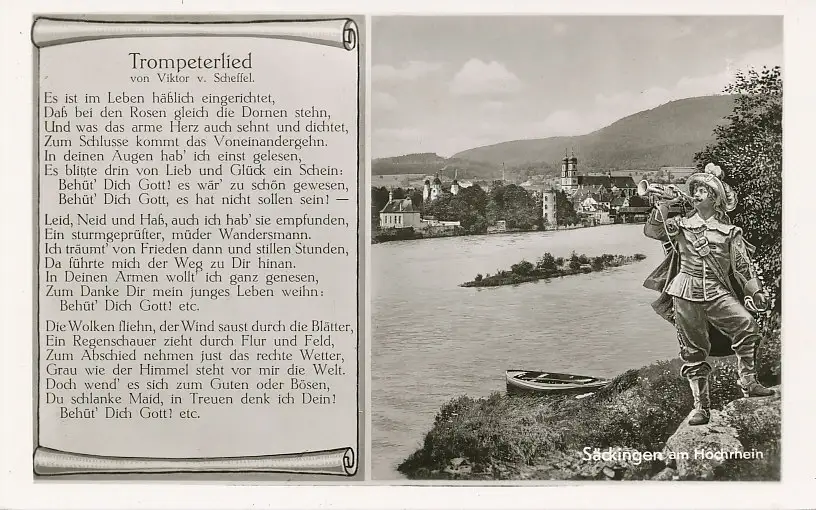 Trompeterlied
von Viktor v. Scheffel.
Es ist im Leben häßlich eingerichtet,
Daß bei den Rosen gleich die Dornen stehn,
Und was das arme Herz auch sehnt und dichtet,
Zum Schlusse kommt das Voneinandergehn.
In deinen Augen hab' ich einst gelesen,
Es blitzte drin von Lieb und Glück ein Schein:
Behüt' Dich Gott! es wär' zu schön gewesen,
Behüt' Dich Gott, es hat nicht sollen sein! —
Leid, Neid und Haß, auch ich hab' sie empfunden,
Ein sturmgeprüfter, müder Wandersmann.
Ich träumt' von Frieden dann und stillen Stunden,
Da führte mich der Weg zu Dir hinan.
In Deinen Armen wollt' ich ganz genesen,
Zum Danke Dir mein junges Leben weihn:
Behüt' Dich Gott! etc.
Die Wolken fliehn, der Wind saust durch die Blätter,
Ein Regenschauer zieht durch Flur und Feld,
Zum Abschied nehmen just das rechte Wetter,
Grau wie der Himmel steht vor mir die Welt.
Doch wend' es sich zum Guten oder Bösen,
Du schlanke Maid, in Treuen denk ich Dein!
Behüt' Dich Gott! etc.
Säckingen am Hochrhein